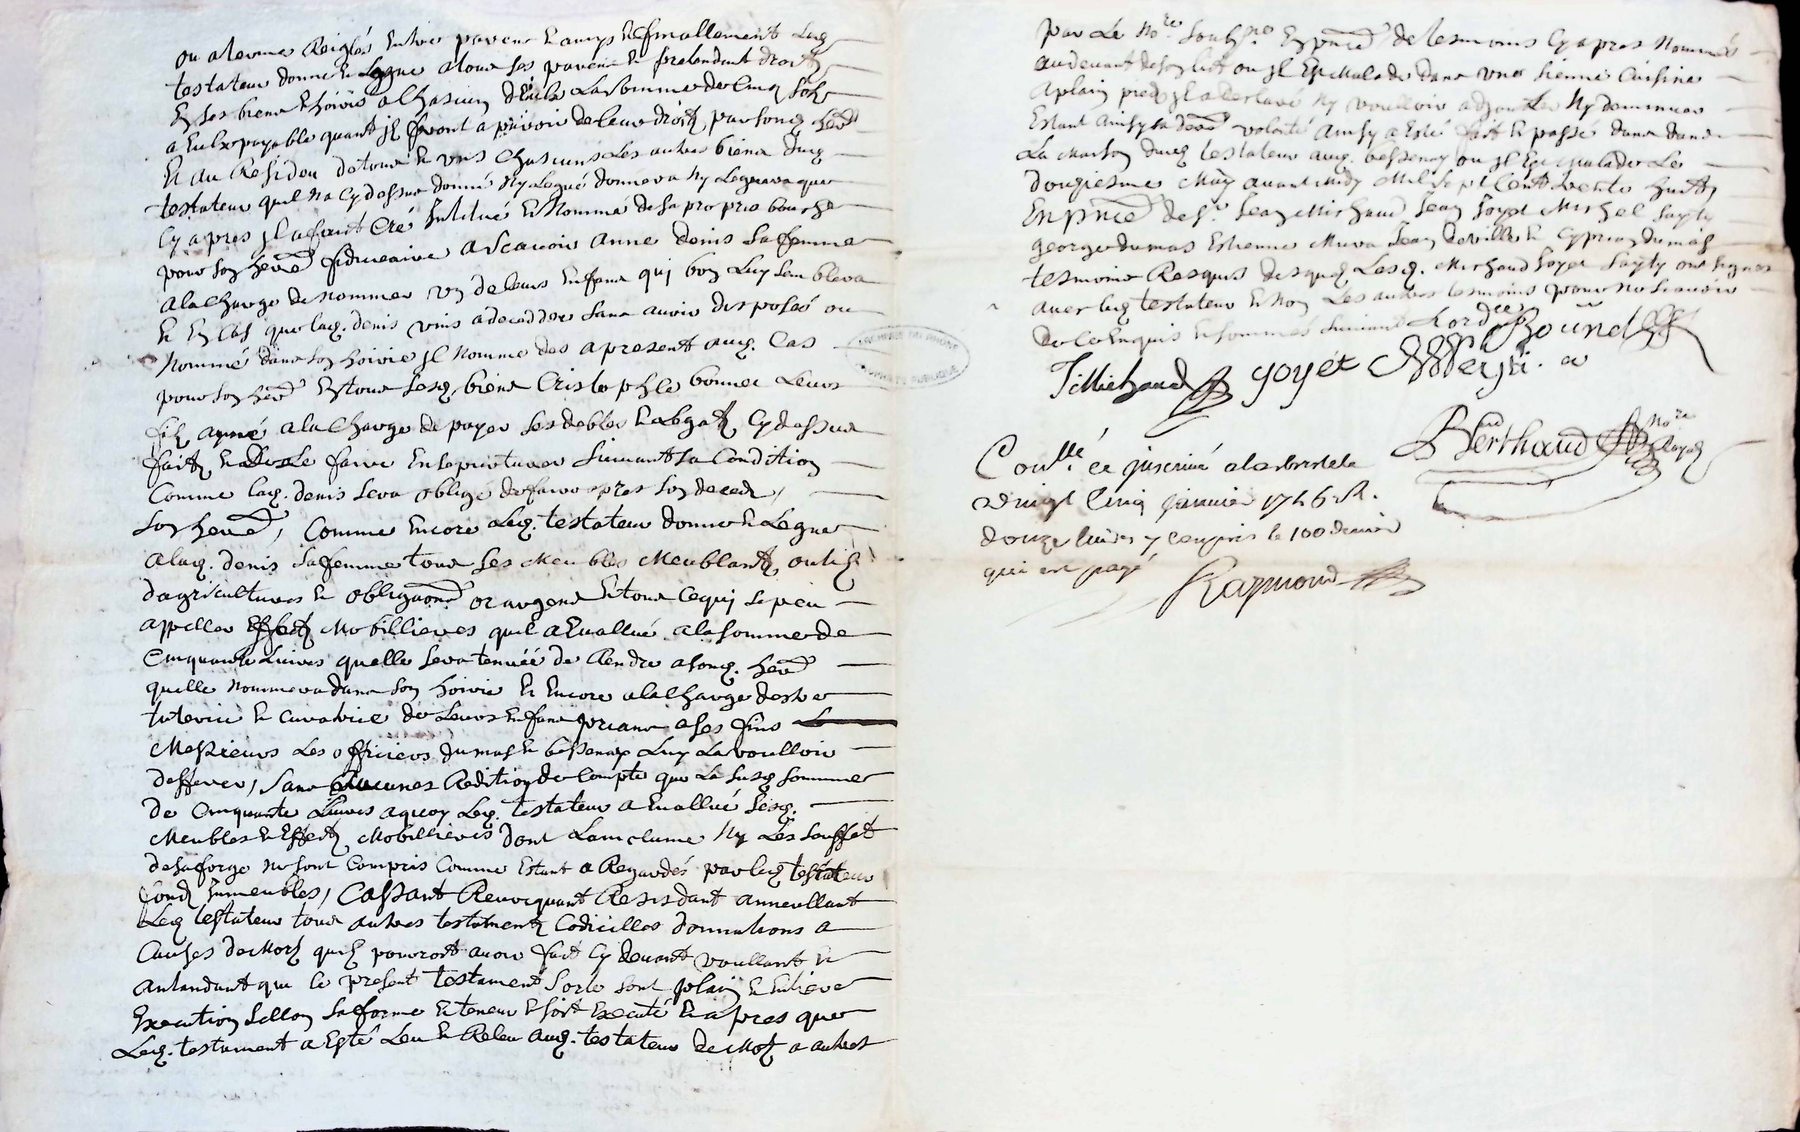 ou a lermes Reiglés Entre parens & amys & finallement led.
testateur donne & Legue a tous ses parens & pretendant droit
En ses biens & hoirie a Chascun d'Eulx La somme de Cinq sols
a Eulx payable quant jl seront aparoir de leur droit par song. herer
Et au Residou de tous & uns Chascuns Les autres biens dud.
testateur quil Na Cy dessus donné Ny Legué donnera Ny Leguera que
Cy apres jl a fait Cré Institué & Nommé de sa propre bouche
pour son herer fiduciaire a scavoir anne denis sa femme
a la Charge de nommer un de leurs Enfans qui bon Luy semblera
& En Cas que lad. denis vins a decedder sans avoir disposé ou
Nommé dans son hoirie jl nomme des a present aud. Cas
pour son herer En tous sesd. biens Cristophle bonnet Leurs
fils ayné a la Charge de payer ses debtes & Legats Cy dessus
faits & de Le faire Ensepurturer suivant sa Condition
Comme lad. denis sera obligé de faire apres son deceds
son herer, Comme Encore Led. testateur donne & Legue
a lad. denis sa femme tous ses Meubles Meublants outils
d'agricultures & obligaons or argens & tous Ce quj se peu
appeller Effects Mobillieres quil a Evallué a la somme de
Cinquante Livres quelle sera tenuée de Rendre a song. herer
quelle nommera dans son hoirie & Encore a la Charge destre
tuterice & Curatrice de Leurs Enfans prians a ses fins
Messieurs Les officiers du mas & bessenay Luy La voulloir
defferer, sans Aucunes Redition de Compte que La susd. somme
de Cinquante Livres a quoy Led. testateur a Evallué sesd.
Meubles & Effects Mobillieres dont Lamclume Ny Les souffet
de sa forge Ne sont Compris Comme Estant a Regardés par led. testateur
fonds Jmmeubles, Cassant Revocquant Resisdant annullant
Led. testateur tous autres testaments Codicilles donnations a
Causes de Mort quil pourroit avoir fait Cy devant voullant &
antandant que le present testament sorte sont plain & Entiere
Execution sellon sa forme & teneur & soit Executé & apres que
Led. testament a Esté Leu & Releu aud. testateur de Mot a autres
par Le Nore. soubsne. En pnce de tesmoins Cy apres Nommés
au devant de son lict ou jl Est Malade dans une sienne Cuisine
a plain pied jl a declaré Ny voulloir adjouter Ny diminuer
Estant Ainsy sa derre volonté Ainsy a Esté fait & passé dans dans
La Maison dud. testateur aud. bessenay ou jl Est Malade Le
dougiesme May avant Midy Mil sept Cent trente huit
En pnce de sr. Jean Michaud Jean Joyet Michel sayty
george dumas Estienne Mura Jean deville & Cyprien dumas
tesmoins Resquis desquels Lesd. Michaud Joyet sayty ont signés
avec led. testateur & Non Les autres tesmoins pour ne scavoir
de Ce Enquis & sommés suivant Lordce
Bounet
JMichaud Joyet
Berthaud Nore Royal
Coullé ce insinué a la bresle le
vingt Cinq janvier 1746 R.
douze livres y compris le 100 denier
qui est payé
Raymond